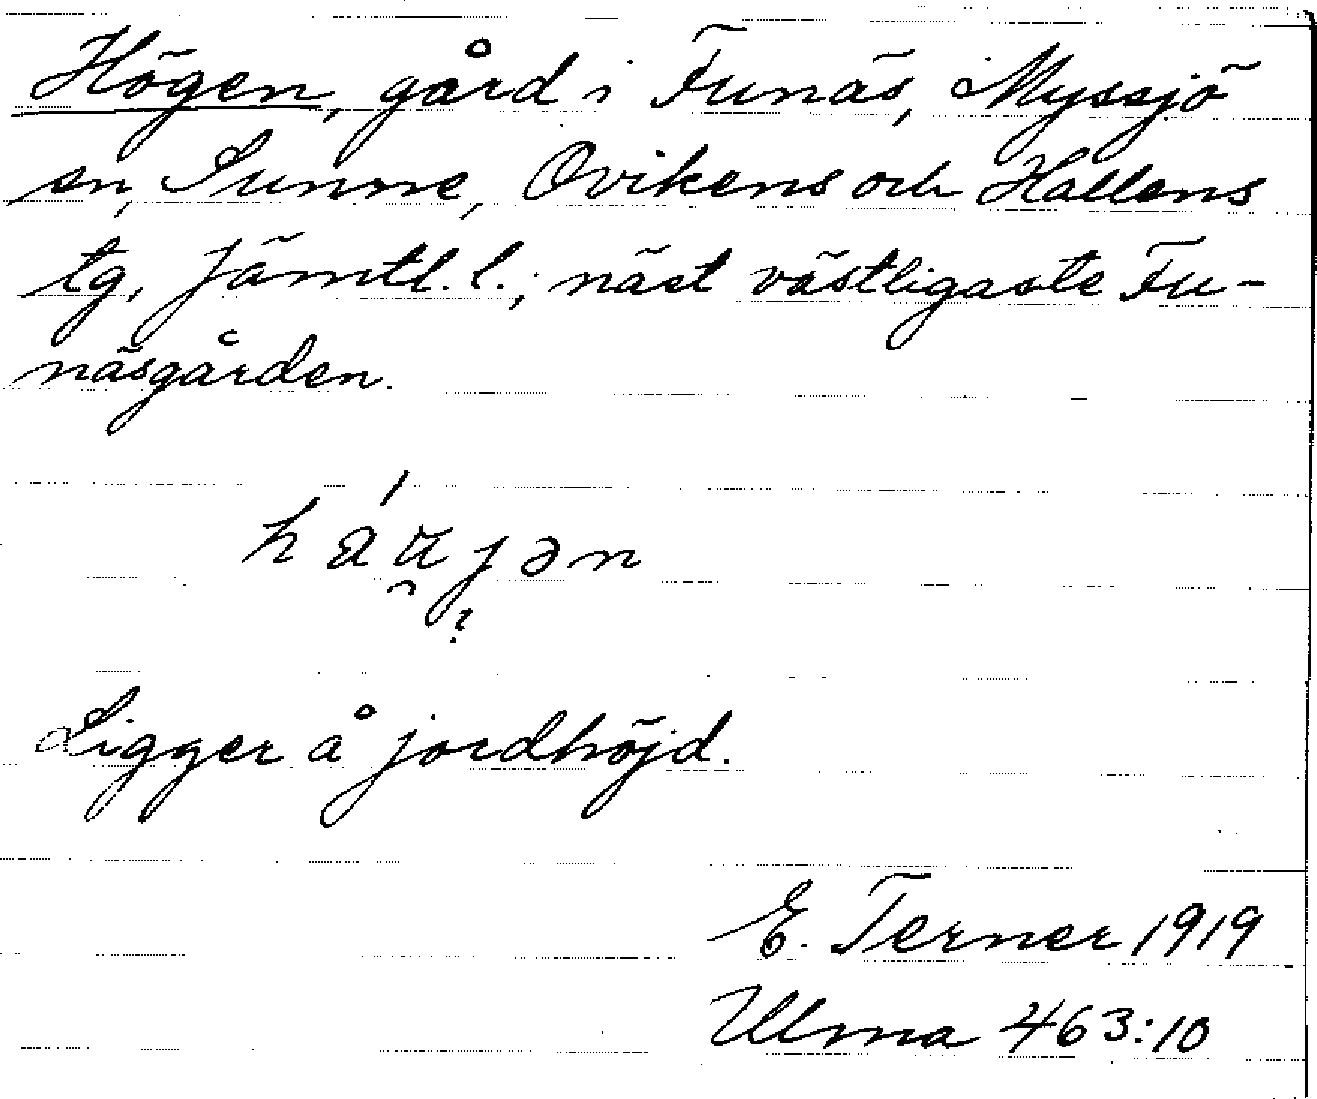 Högen, gård i Funäs, Myssjö
sn, Sunne, Ovikens och Hallens
tg, Jämtl. l.; näst västligaste Fu-
näsgården.
Ligger å jordhöjd.
E. Terner 1919
Ulma 463:10